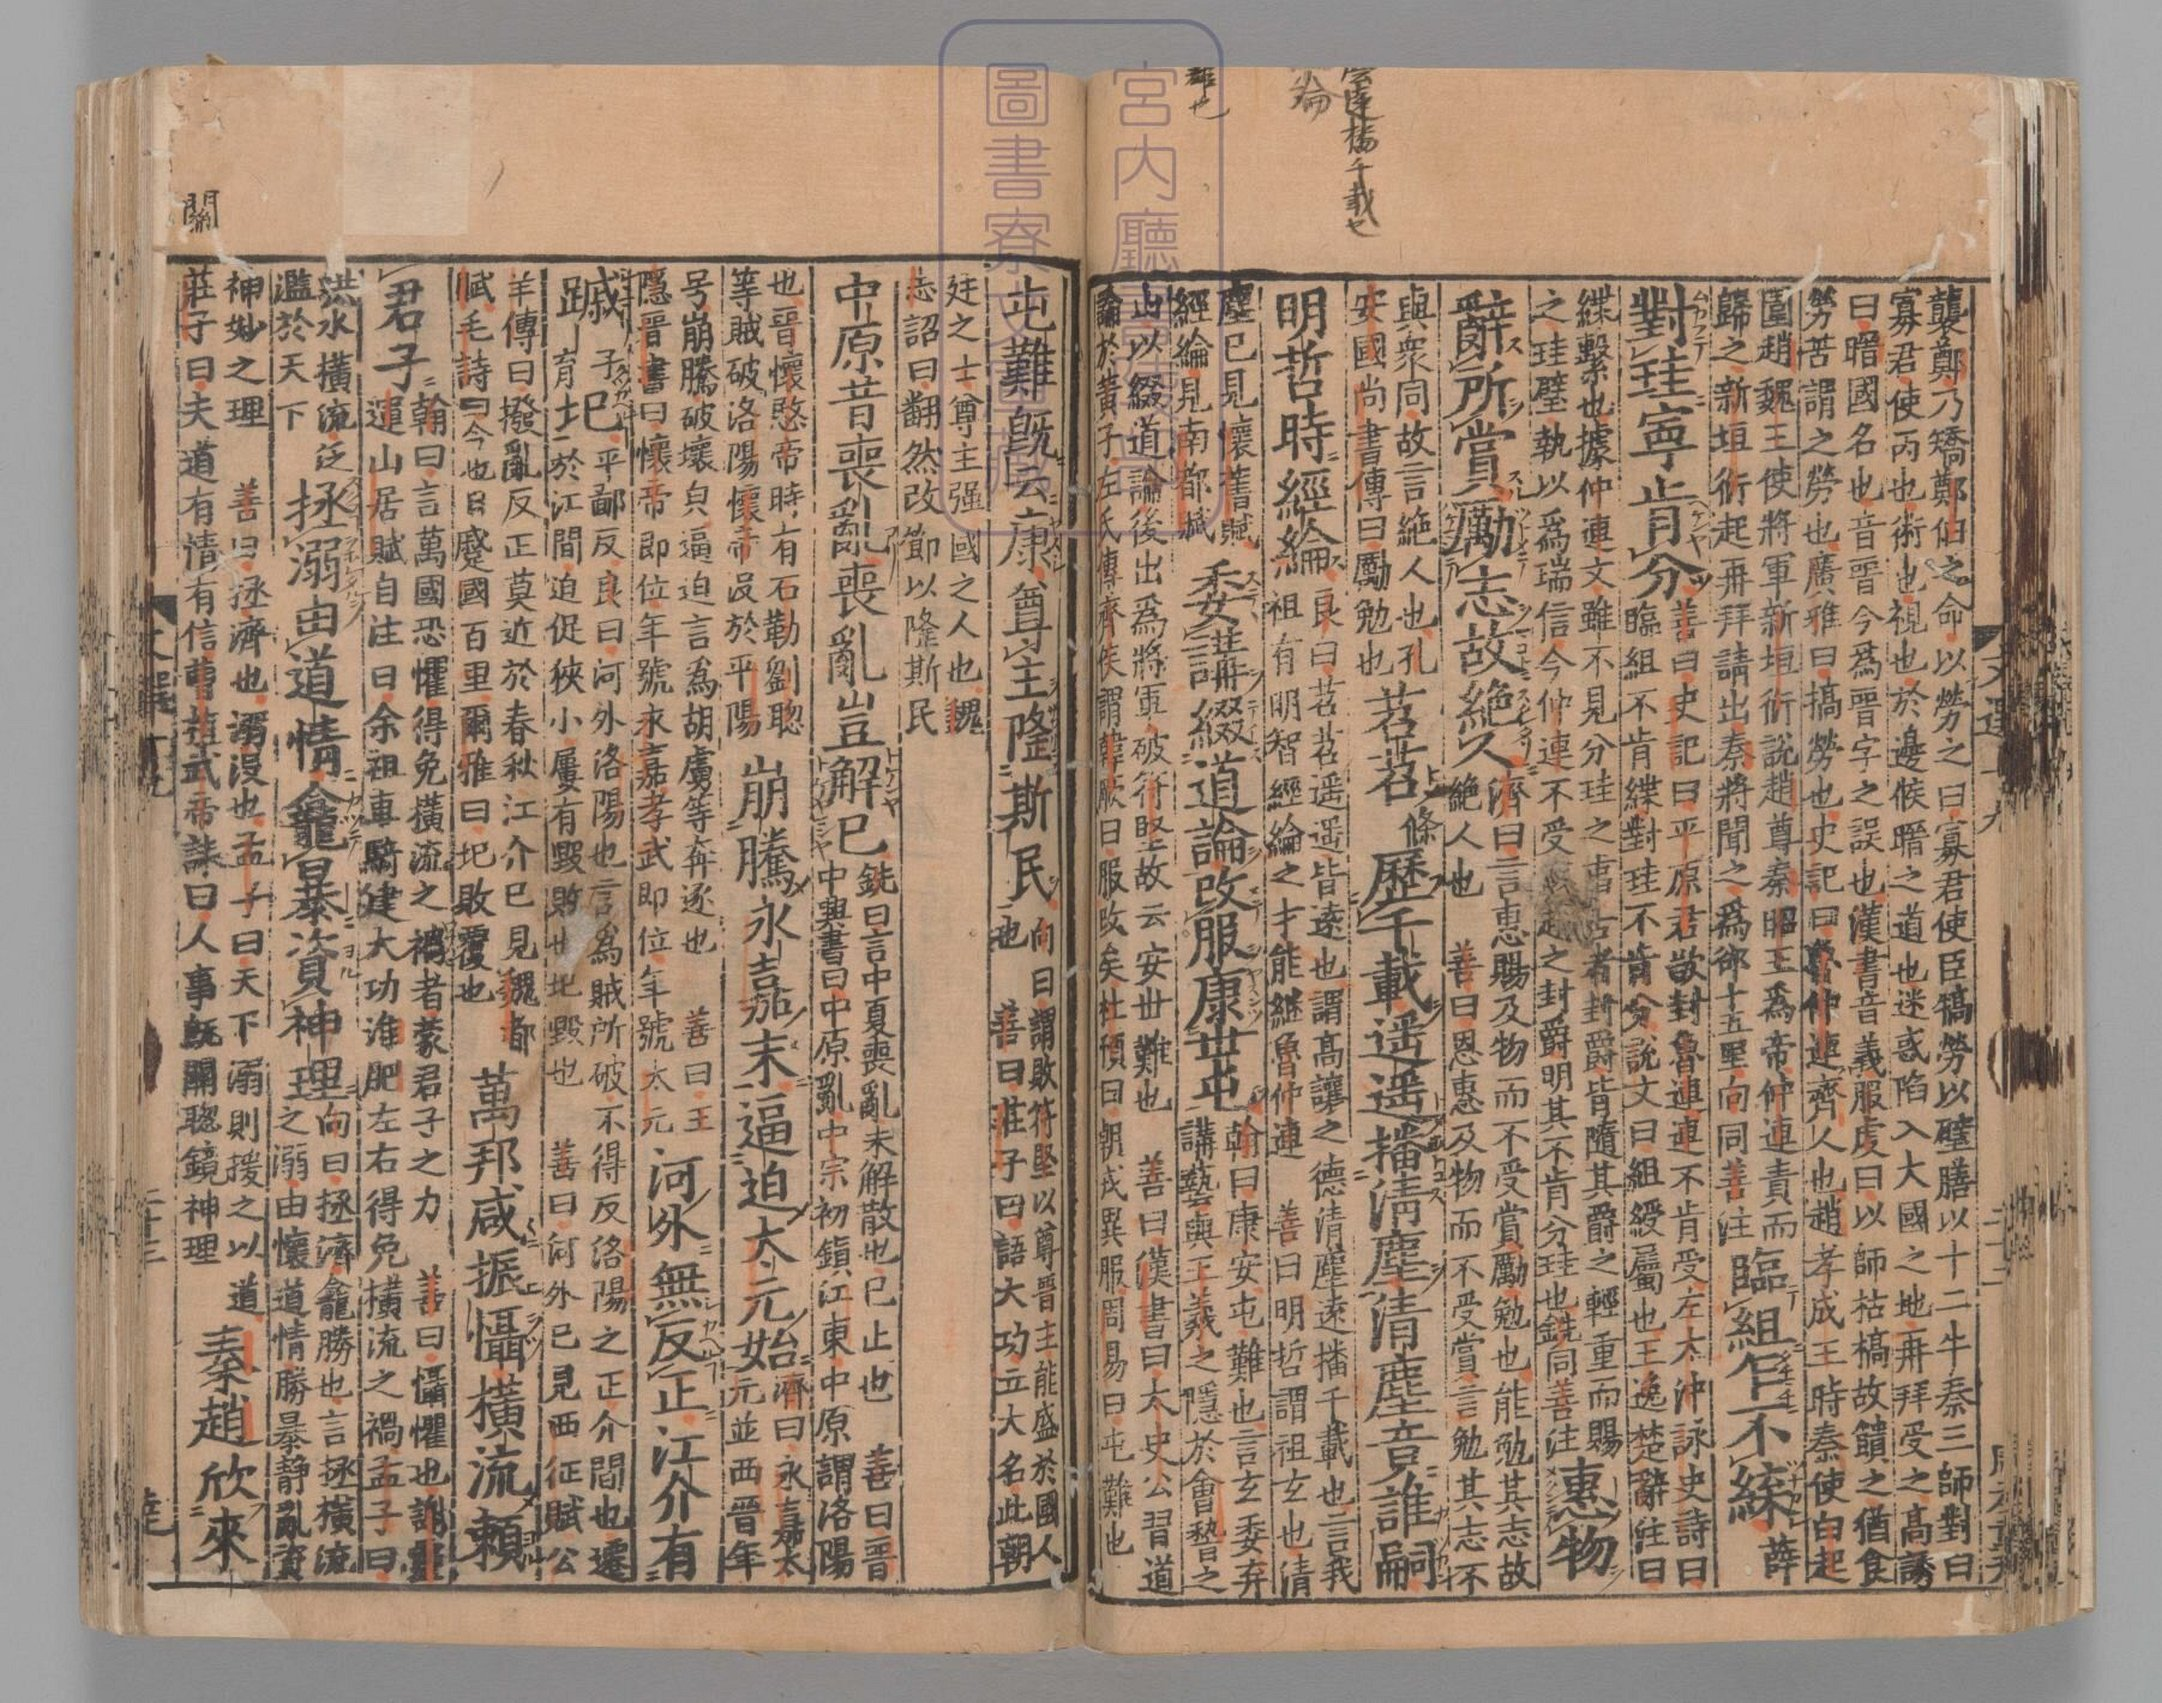 襲鄭乃矯鄭伯之命以勞之曰寡君使臣犒勞以璧膳以十二牛秦三師對曰
寡君使丙也術也視也於邊候暗之道也迷惑陷入大國之地再拜受之高誘
曰暗國名也音晋今為晋字之誤也漢書音義服虔曰以師枯槁故饋之猶食
勞苦謂之勞也廣雅曰犒勞也史記曰魯仲連齊人也趙孝成王時秦使白起
圍趙魏王使將軍新垣衍說趙尊秦昭王為帝仲連責而
歸之新垣衍起再拜請出秦將聞之為却十五里向同善注
臨組乍不緤薛
對珪寧肯分
善曰史記曰平原君欲封魯連連不肯受左太沖詠史詩曰
臨組不肯緤對珪不肯分說文曰組綬屬也王逸楚辭注曰
緤繫也據仲連文雖不見分珪之事古者封爵皆隨其爵之輕重而賜
之珪璧執以為瑞信今仲連不受趙之封爵明其不肯分珪也銑同善注
惠物
辭所賞勵志故絕人
濟曰言惠賜及物而不受賞勵勉也能勉其志故
絕人也 善曰恩惠及物而不受賞言勉其志不
與衆同故言絕人也孔
安國尚書傳曰勵勉也
苕苕條歷千載遥遥播清塵清塵竟誰嗣
明哲時經綸
良曰苕苕遥遥皆遠也謂高讓之德清塵遠播千載也言我
祖有明智經綸之才能継魯仲連 善曰明哲謂祖玄也清
塵已見懷舊賦
經綸見南都賦
委講綴道論改服康世屯
翰曰康安屯難也言玄委弃
講藝與王羲之隱於會稽之
山以綴道論後出為將軍破符堅故云安世難也 善曰漢書曰太史公習道
論於黃子左氏傳齊侯謂韓厥曰服改矣杜預曰朝戎異服周易曰屯難也
屯難旣云康尊主隆斯民
向曰謂敗符堅以尊晋主能盛於國人
也 善曰莊子曰語大功立大名此朝
廷之士尊主强國之人也魏
志詔曰翻然改節以隆斯民
中原昔喪亂喪亂豈解已
銑曰言中夏喪亂未解散也已止也 善曰晋
中興書曰中原亂中宗初鎮江東中原謂洛陽
也晋懷愍帝時有石勒劉聦
等賊破洛陽懷帝沒於平陽
崩騰永嘉末逼迫太元始
濟曰永嘉太
元並西晋年
号崩騰破壞皃逼迫言為胡虜等奔逐也 善曰王
隱晋書曰懷帝即位年號永嘉孝武即位年號太元
河外無反正江介有
蹙子六蹴育圮平鄙反
良曰河外洛陽也言為賊所破不得反洛陽之正介間也遷
於江間迫促狹小屢有毀敗也圮毀也 善曰河外已見西征賦公
羊傳曰撥亂反正莫近於春秋江介已見魏都
賦毛詩曰今也日蹙國百里爾雅曰圮敗覆也
萬邦咸振懾橫流賴
君子
翰曰言萬國恐懼得免橫流之禍者蒙君子之力 善曰懾懼也謝靈
運山居賦自注曰余祖車騎建大功淮肥左右得免橫流之禍孟子曰
洪水橫流泛
濫於天下
拯溺由道情龕暴資神理
向曰拯濟龕勝也言拯橫流
之溺由懷道情勝暴靜亂資
神妙之理 善曰拯濟也溺没也孟子曰天下溺則援之以道
莊子曰夫道有情有信曹植武帝誄曰人事旣關聦鏡神理
秦趙欣來
文選十九
二十三
關
播千載也
宮内廳
圖書寮